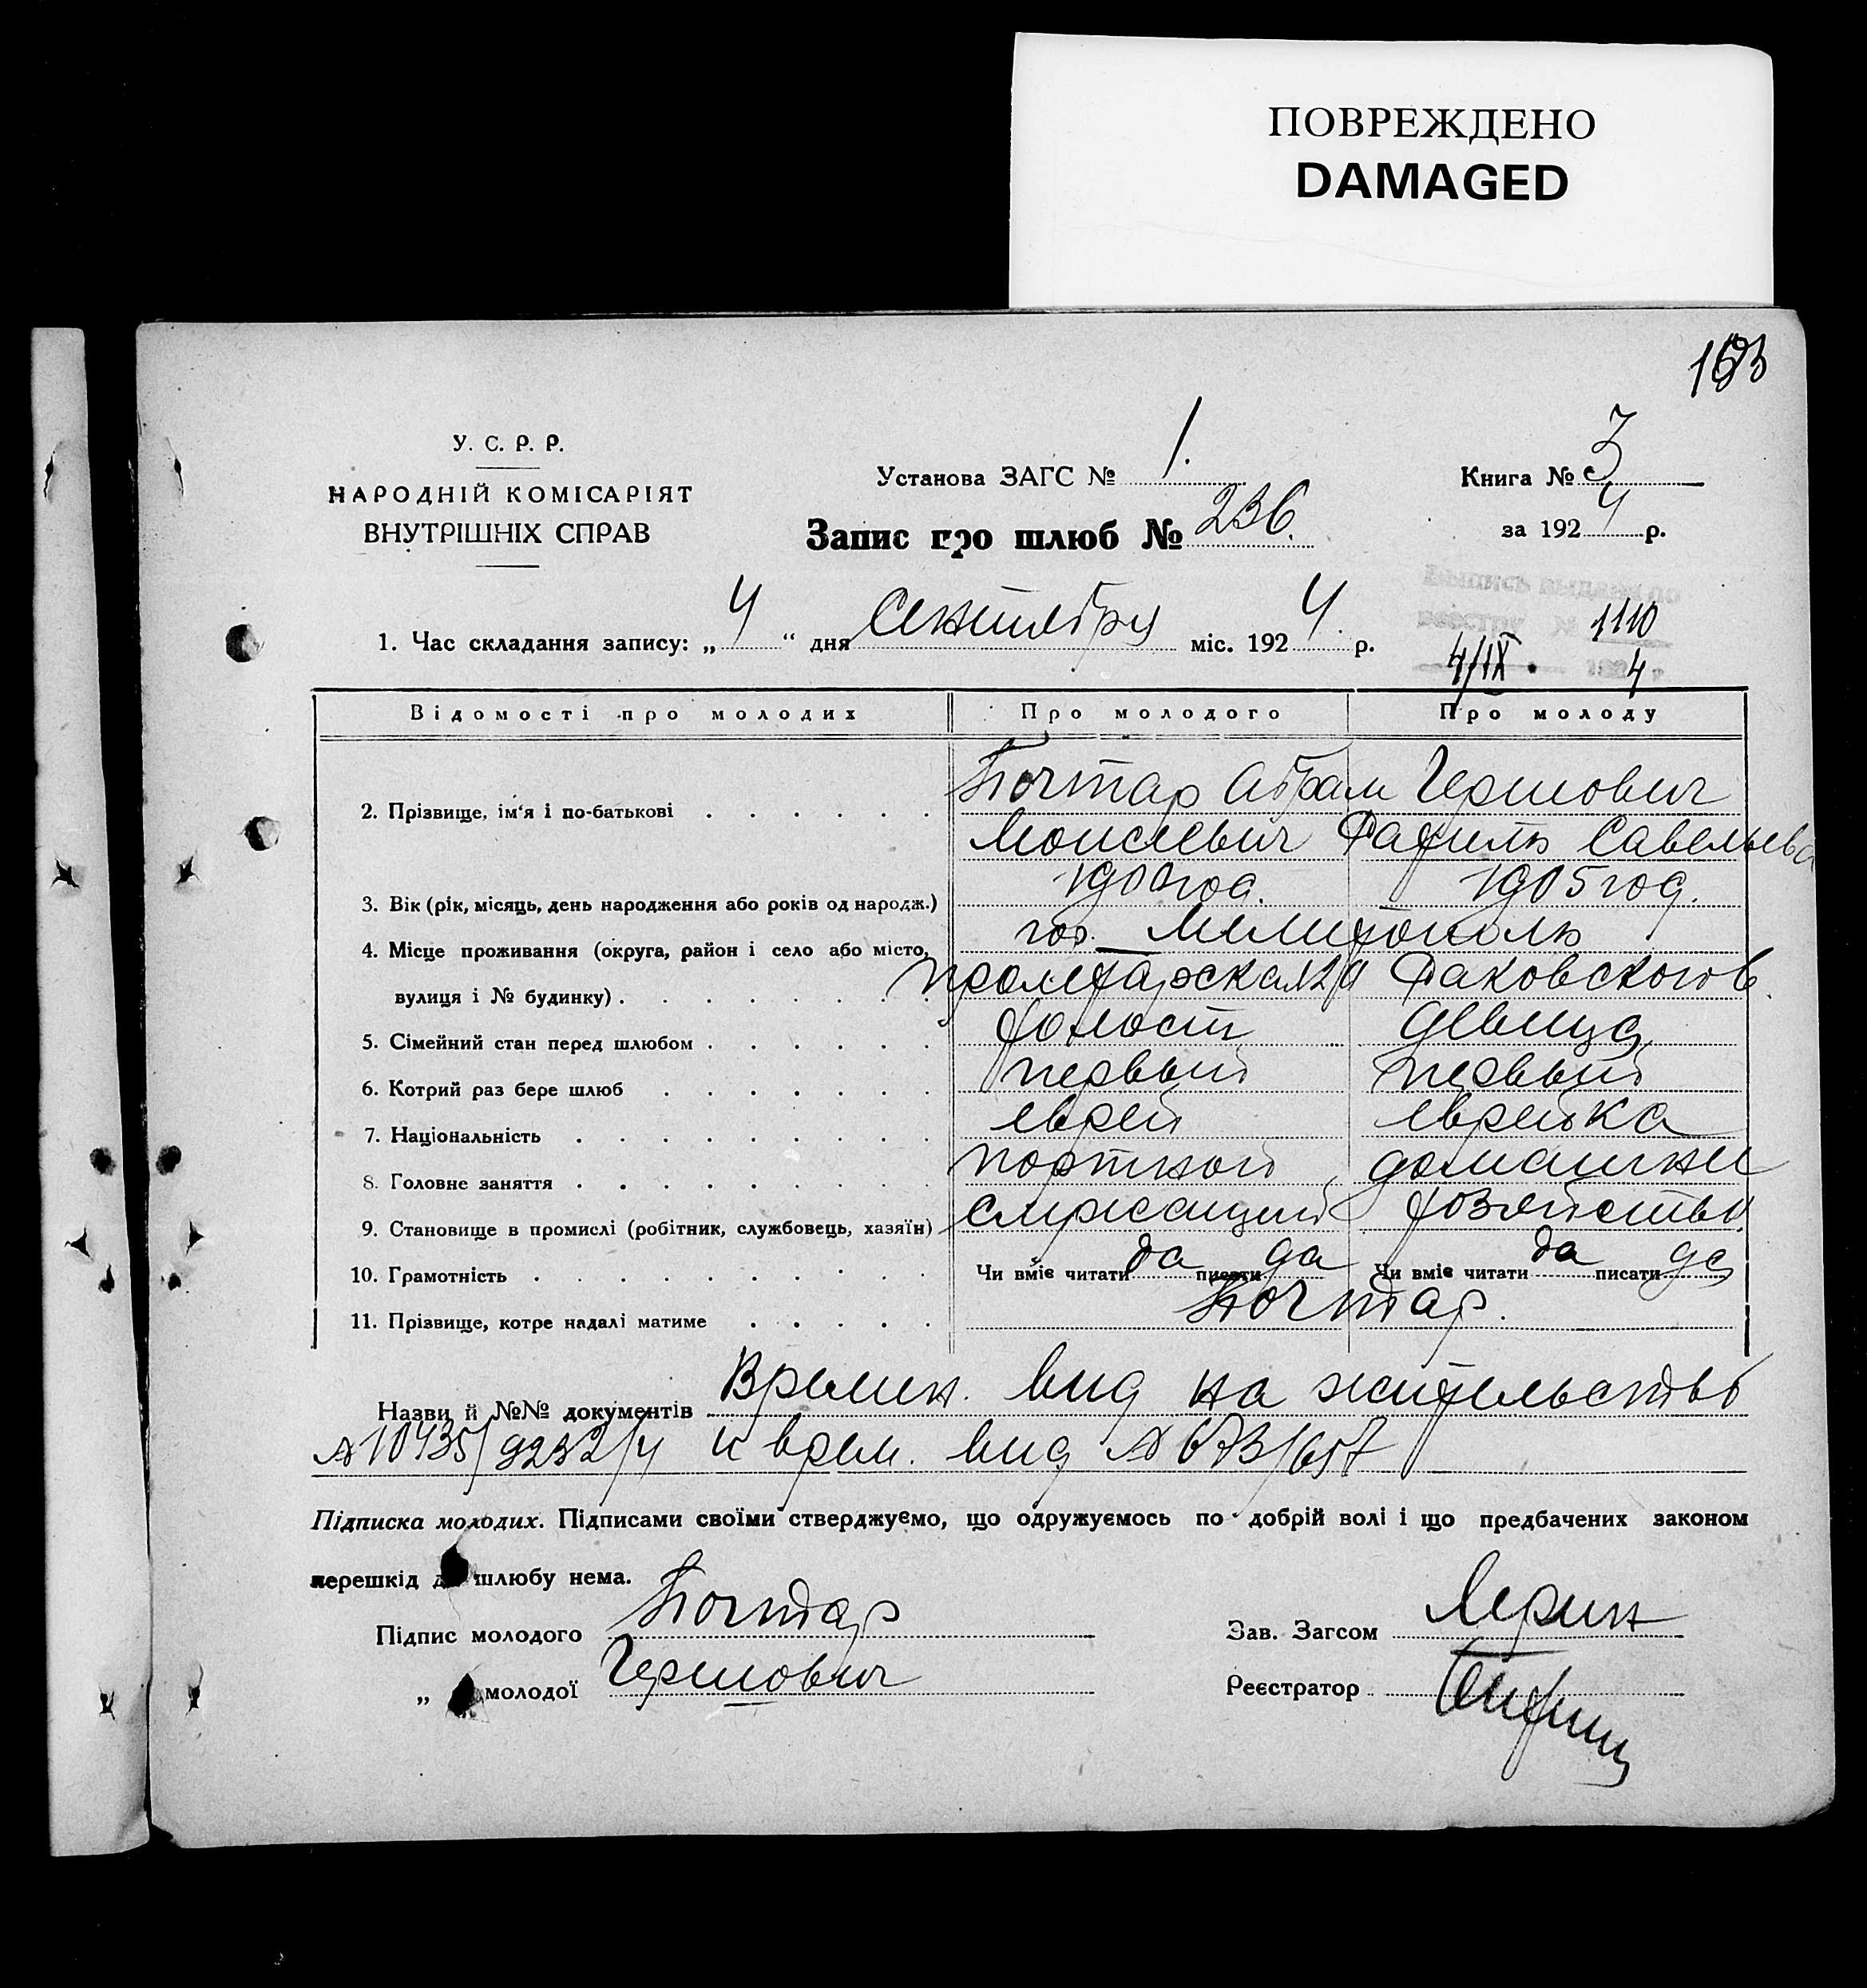 ПОВРЕЖДЕНО
DAMAGED
У. С. Р. Р.
НАРОДНІЙ КОМІСАРІЯТ
ВНУТРІШНІХ СПРАВ
Установа ЗАГС № 1.
Книга № 3
за 1924 р.
Запис про шлюб № 236.
Выпись выдана по
реестру № 1110
4/IX 4
1. Час складання запису: „4“ дня Сентября міс. 1924 р.
Відомості про молодих Про молодого Про молоду
2. Прізвище, ім'я і по-батькові Почтар Абрам Гершович
Моисеевич Рахиль Савельева
3. Вік (рік, місяць, день народження або років од народж.) 1900 год. 1905 год.
4. Місце проживання (округа, район і село або місто, гор. Мелитополь
вулиця і № будинку) Пролетарская Раковского 6.
5. Сімейний стан перед шлюбом холост девица
6. Котрий раз бере шлюб первый первый
7. Національність еврей еврейка
8. Головне заняття портной домашнее
9. Становище в промислі (робітник, службовець, хазяїн) служащий хозяйство
10. Грамотність Чи вміє читати да писати да Чи вміє читати да писати да
11. Прізвище, котре надалі матиме Почтар.
Назви й №№ документів Времен. вид на жительство
№ 10435/9232/4 и врем. вид № 673/657
Підписка молодих. Підписами своїми стверджуємо, що одружуємось по добрій волі і що предбачених законом
перешкід до шлюбу нема.
Підпис молодого Почтар
Зав. Загсом
„ молодої Гершович
Реєстратор